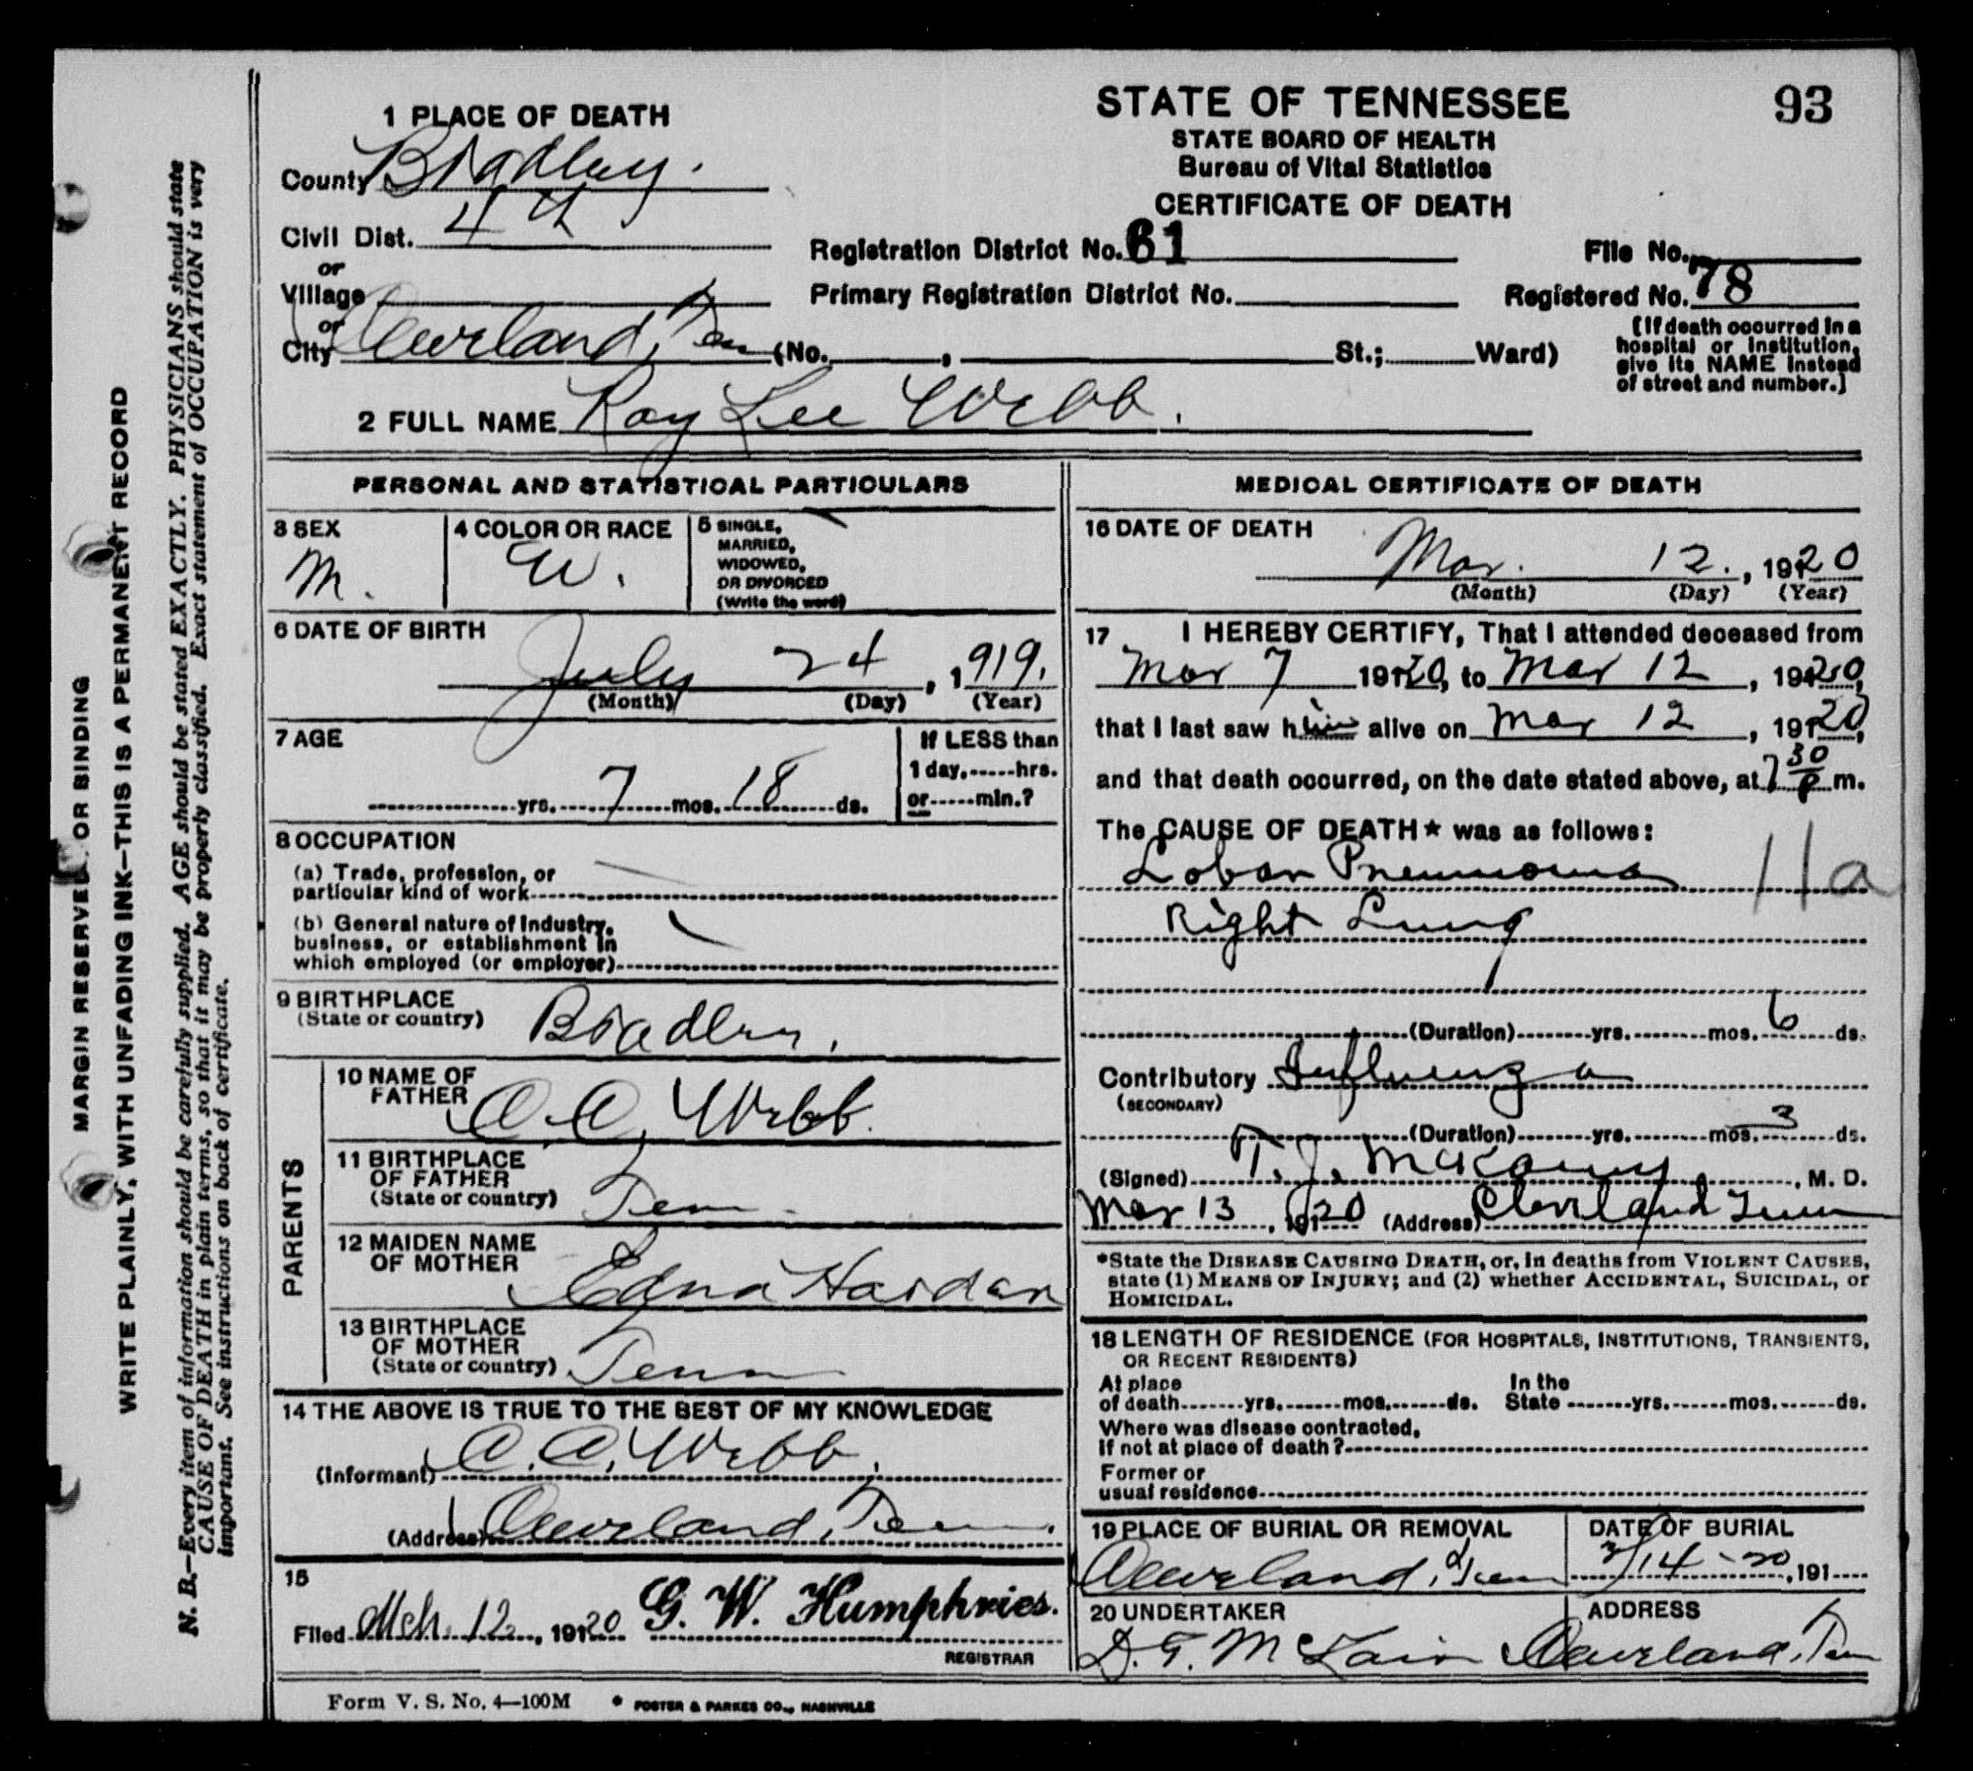 93
STATE OF TENNESSEE
STATE BOARD OF HEALTH
Bureau of Vital Statistics
CERTIFICATE OF DEATH
1 PLACE OF DEATH
County Bradley.
Civil Dist. 4th
or
Village
or
City Cleveland, Ten (No. , St.; Ward)
Registration District No. 61
Primary Registration District No.
File No.
Registered No. 78
[If death occurred in a
hospital or institution,
give its NAME instead
of street and number.]
2 FULL NAME Roy Lee Webb.
PERSONAL AND STATISTICAL PARTICULARS
3 SEX
M.
4 COLOR OR RACE
W.
5 SINGLE,
MARRIED,
WIDOWED,
OR DIVORCED
(Write the word)
6 DATE OF BIRTH
July 24, 1919.
(Month) (Day) (Year)
7 AGE
yrs. 7 mos. 18 ds.
If LESS than
1 day, hrs.
or min.?
8 OCCUPATION
(a) Trade, profession, or
particular kind of work
(b) General nature of Industry,
business, or establishment in
which employed (or employer)
9 BIRTHPLACE
(State or country) Bradley.
PARENTS
10 NAME OF
FATHER
Webb.
11 BIRTHPLACE
OF FATHER
(State or country) Tenn.
12 MAIDEN NAME
OF MOTHER Edna Hardan
13 BIRTHPLACE
OF MOTHER
(State or country) Tenn
14 THE ABOVE IS TRUE TO THE BEST OF MY KNOWLEDGE
(Informant) Webb.
(Address) Cleveland, Tenn.
15
Filed Mch. 12, 1920 G. W. Humphries.
REGISTRAR
MEDICAL CERTIFICATE OF DEATH
16 DATE OF DEATH
Mar. 12., 1920
(Month) (Day) (Year)
17 I HEREBY CERTIFY, That I attended deceased from
Mar 7 1920, to Mar 12, 1920,
that I last saw him alive on Mar 12, 1920,
and that death occurred, on the date stated above, at 7 30 P m.
The CAUSE OF DEATH* was as follows:
Lobar Pneumonia 11a
Right Lung
(Duration) yrs. mos. 6 ds.
Contributory Influenza
(SECONDARY)
(Duration) yrs. mos. 3 ds.
(Signed) T. J. , M. D.
Mar 13, 1920 (Address) Cleveland Tenn
*State the DISEASE CAUSING DEATH, or, in deaths from VIOLENT CAUSES,
state (1) MEANS OF INJURY; and (2) whether ACCIDENTAL, SUICIDAL, or
HOMICIDAL.
18 LENGTH OF RESIDENCE (FOR HOSPITALS, INSTITUTIONS, TRANSIENTS,
OR RECENT RESIDENTS)
At place
of death yrs. mos. ds.
In the
State yrs. mos. ds.
Where was disease contracted,
if not at place of death?
Former or
usual residence
19 PLACE OF BURIAL OR REMOVAL
Cleveland, Tenn
DATE OF BURIAL
3/14-20, 191
20 UNDERTAKER
D. G. McLain
ADDRESS
Cleveland, Ten
Form V. S. No. 4—100M
FOSTER & PARKES CO., NASHVILLE
MARGIN RESERVED FOR BINDING
WRITE PLAINLY, WITH UNFADING INK—THIS IS A PERMANENT RECORD
N. B.—Every item of information should be carefully supplied. AGE should be stated EXACTLY. PHYSICIANS should state
CAUSE OF DEATH in plain terms, so that it may be properly classified. Exact statement of OCCUPATION is very
important. See instructions on back of certificate.